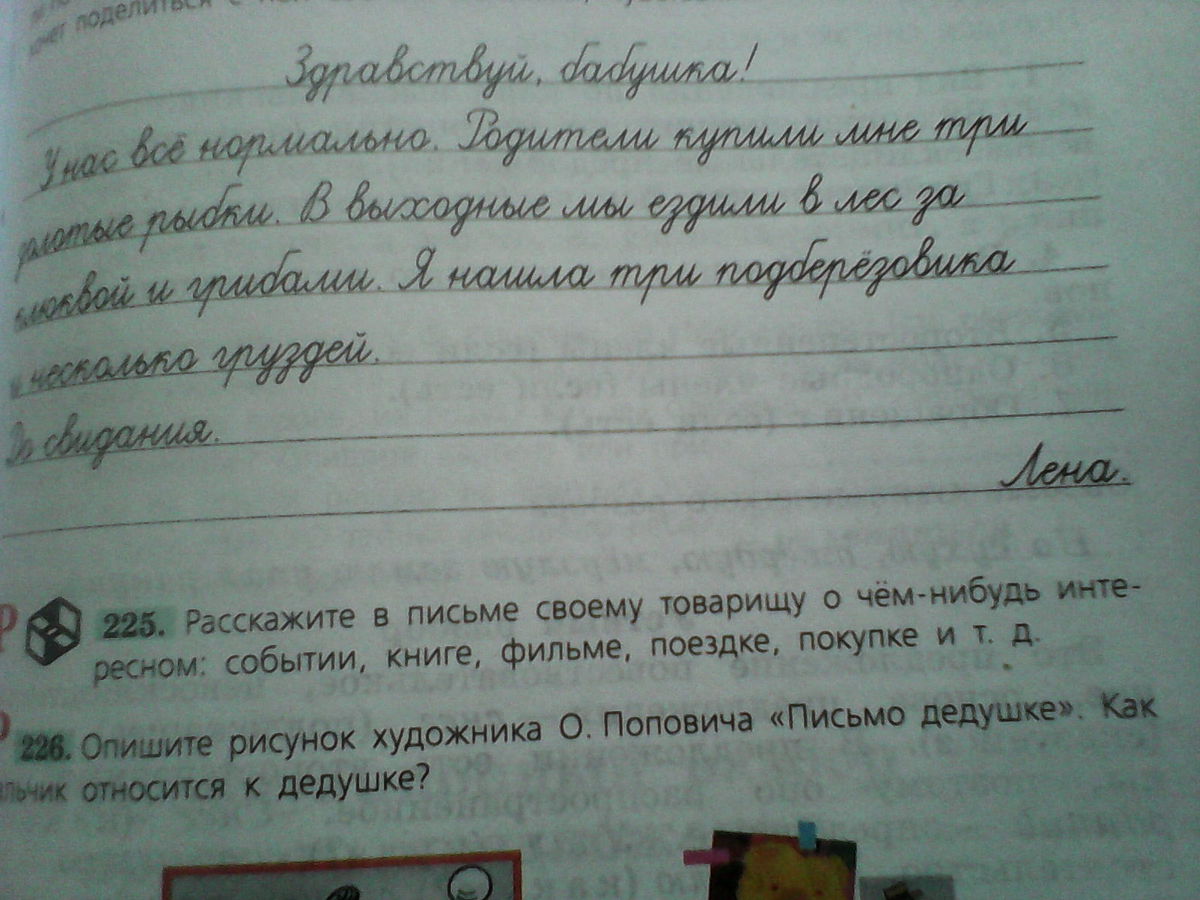 поделиться с
Здравствуй, бабушка!
У нас всё нормально. Родители купили мне три
рыбки. В выходные мы ездили в лес за
и грибами. Я нашла три подберёзовика
и несколько груздей.
До свидания.
Лена.
225. Расскажите в письме своему товарищу о чём-нибудь инте-
ресном: событии, книге, фильме, поездке, покупке и т. д.
226. Опишите рисунок художника О. Поповича «Письмо дедушке». Как
относится к дедушке?